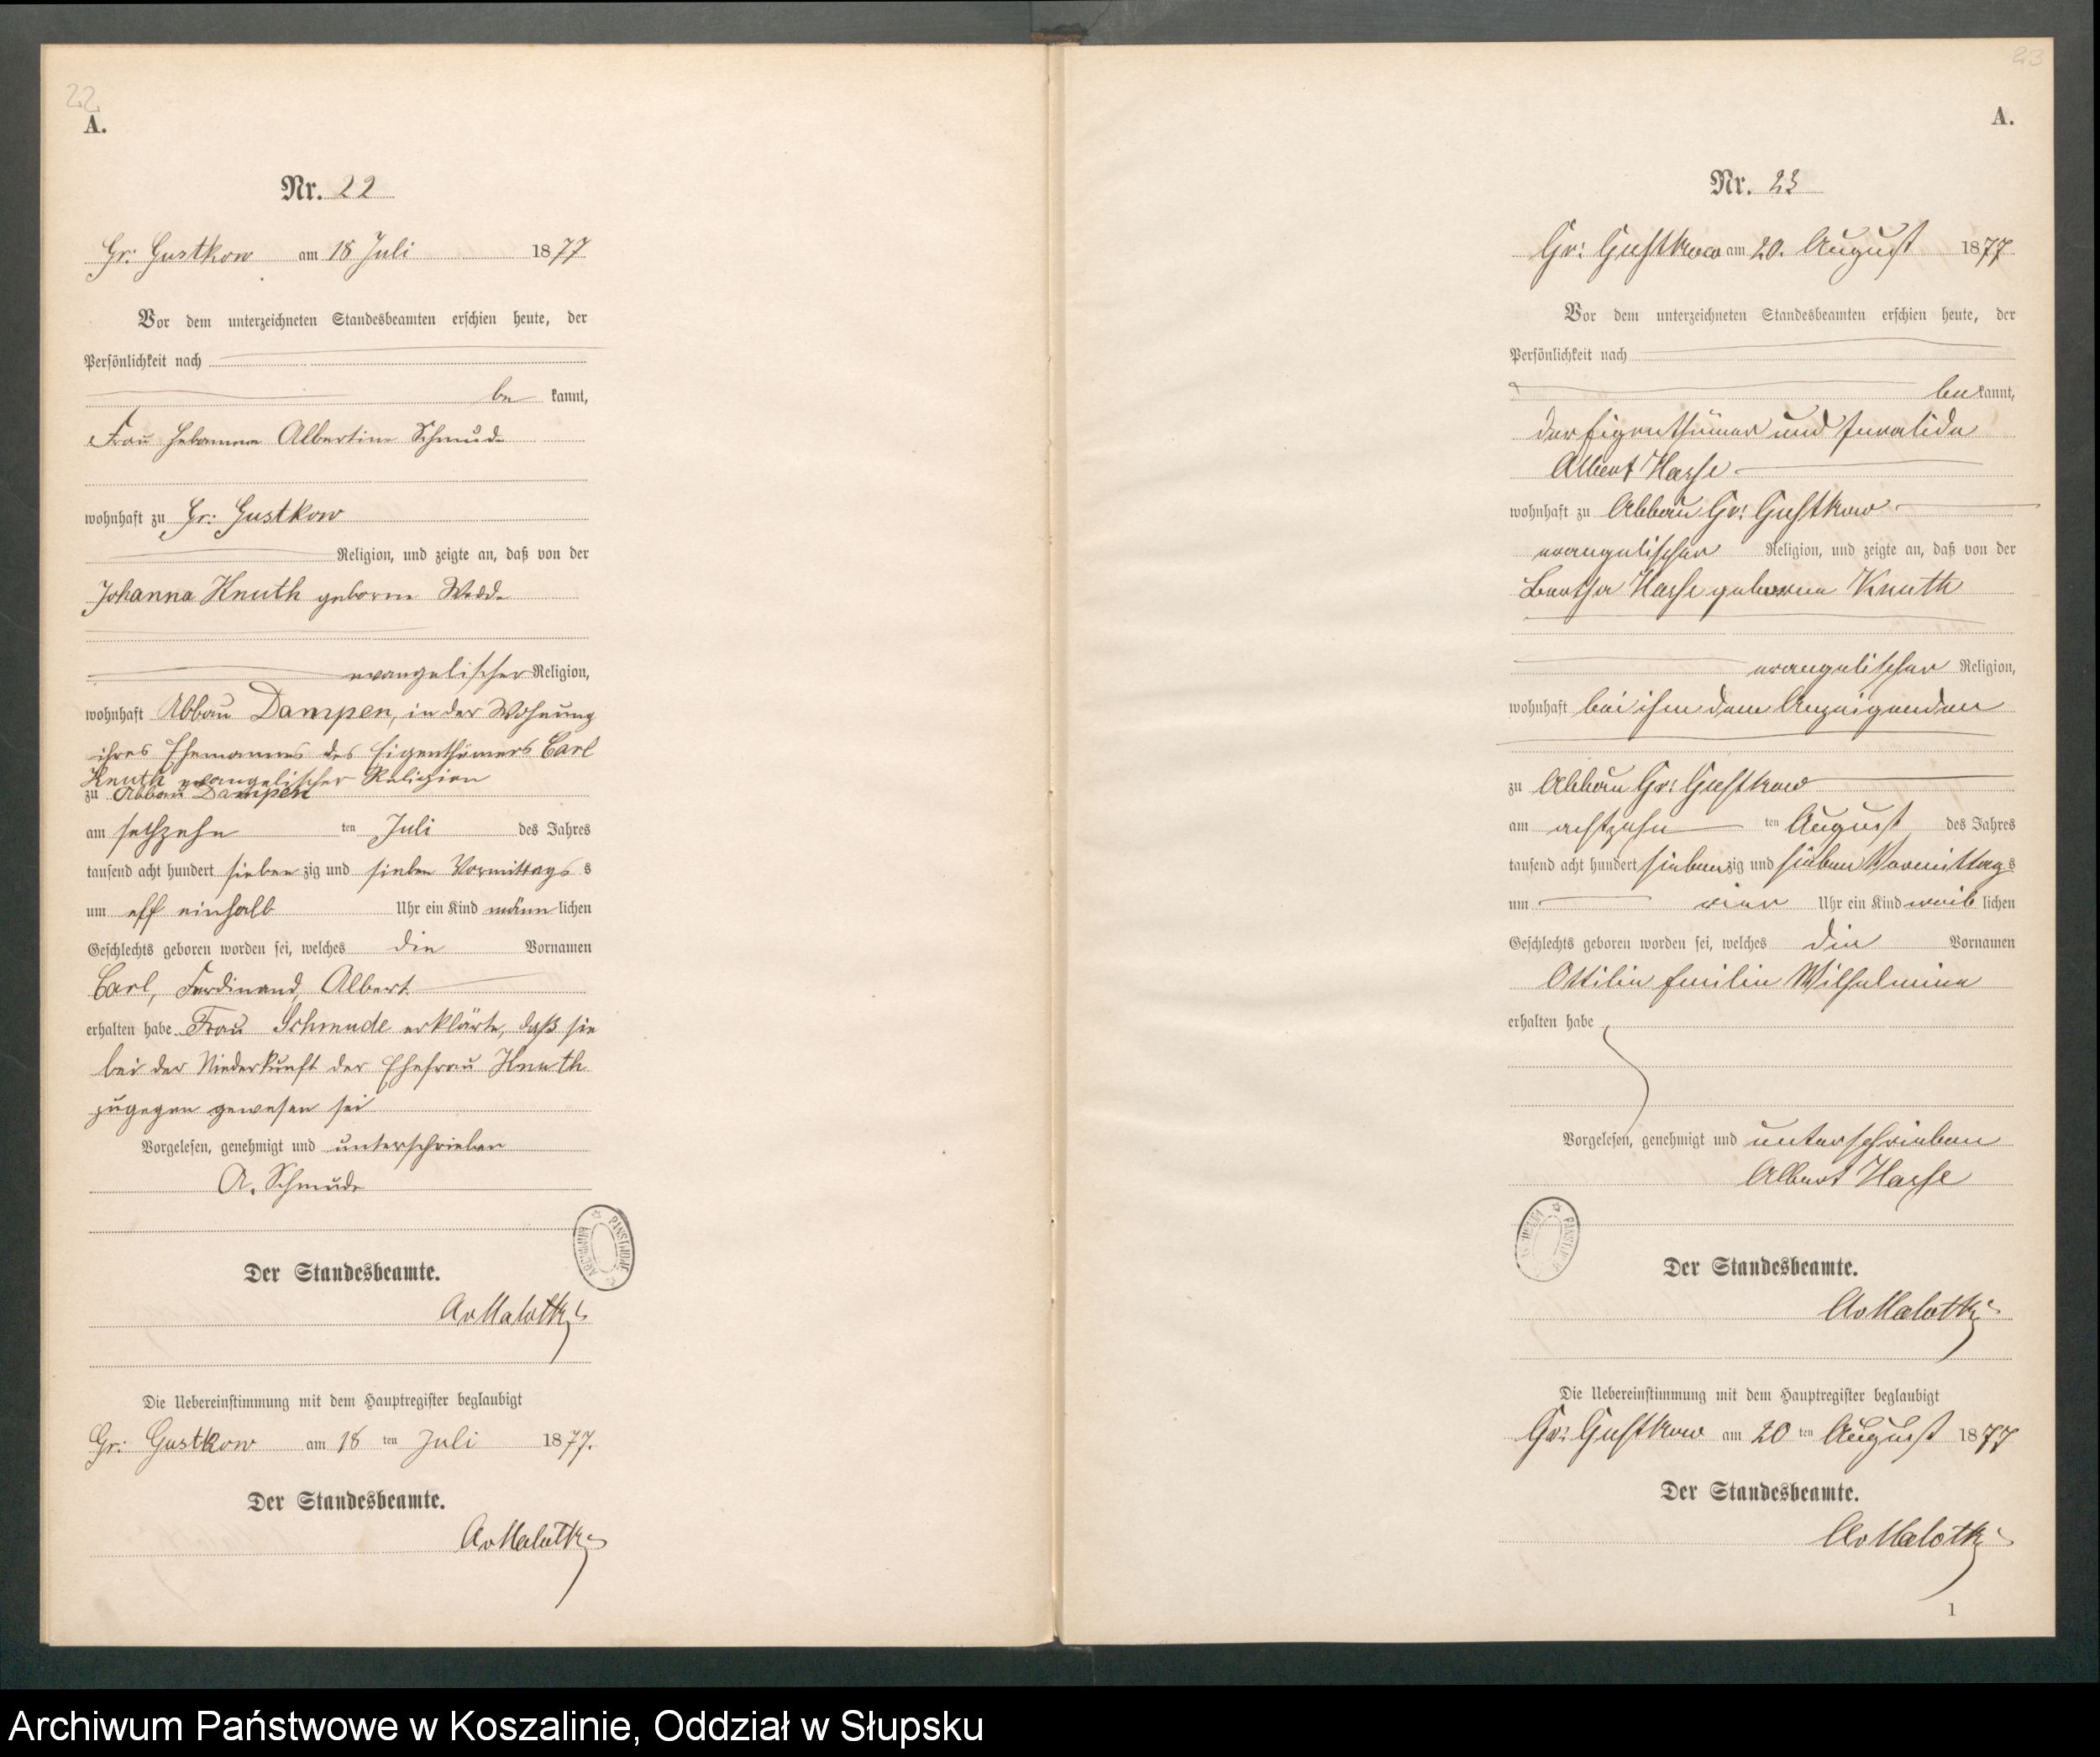 22
A.
Nr. 22
Gr: Gustkow am 18 Juli 1877
Vor dem unterzeichneten Standesbeamten erschien heute, der
Persönlichkeit nach
be kannt,
Frau Hebamme Albertine Schmude
wohnhaft zu Gr: Gustkow
Religion, und zeigte an, daß von der
Johanna Knuth geborne Wedde
evangelischer Religion,
wohnhaft Abbau Dampen, in der Wohnung
ihres Ehemannes des Eigenthümers Carl
Knuth evangelischer Religion
zu Abbau Dampen
am sechzehn ten Juli des Jahres
tausend acht hundert sieben zig und sieben Vormittags s
um elf einhalb Uhr ein Kind männ lichen
Geschlechts geboren worden sei, welches die Vornamen
Carl, Ferdinand, Albert
erhalten habe Frau Schmude erklärte, daß sie
bei der Niederkunft der Ehefrau Knuth
zugegen gewesen sei
Vorgelesen, genehmigt und unterschrieben
A. Schmude
ARCHIWUM PAŃSTWOWE
Der Standesbeamte.
AvMalottki
Die Uebereinstimmung mit dem Hauptregister beglaubigt
Gr: Gustkow am 18 ten Juli 1877.
Der Standesbeamte.
AvMalottki
23
A.
Nr. 23
Gr: Gustkow am 20. August 1877
Vor dem unterzeichneten Standesbeamten erschien heute, der
Persönlichkeit nach
be kannt,
der Eigenthümer und Invalide
Albert Hasse
wohnhaft zu Abbau Gr: Gustkow
evangelischer Religion, und zeigte an, daß von der
Bertha Hasse geborne Knuth
evangelischer Religion,
wohnhaft bei ihm dem Anzeigenden
zu Abbau Gr: Gustkow
am achtzehn ten August des Jahres
tausend acht hundert sieben zig und sieben Vormittag s
um vier Uhr ein Kind weib lichen
Geschlechts geboren worden sei, welches die Vornamen
Ottilie Emilie Wilhelmine
erhalten habe
Vorgelesen, genehmigt und unterschrieben
Albert Hasse
ARCHIWUM PAŃSTWOWE
Der Standesbeamte.
AvMalottki
Die Uebereinstimmung mit dem Hauptregister beglaubigt
Gr: Gustkow am 20 ten August 1877
Der Standesbeamte.
AvMalottki
1
Archiwum Państwowe w Koszalinie, Oddział w Słupsku